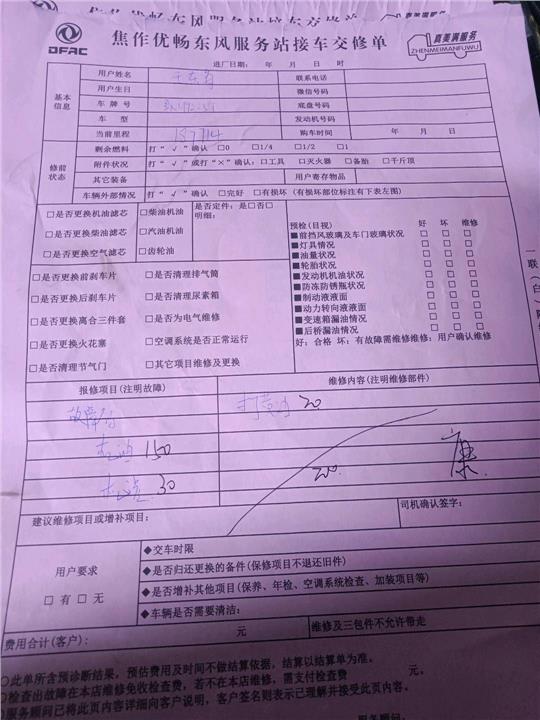 DFAC
焦作优畅东风服务站接车交修单
真美满服务
ZHENMEIMANFUWU
进厂日期: 年 月 日 时
基本信息
用户姓名 联系电话
用户生日 微信号码
车牌号 底盘号码
车型 发动机号码
当前里程 购车时间 年 月 日
修前状态
剩余燃料 打“√”确认 □0 □1/4 □1/2 □1
附件状况 打“√”或打“×”确认:□工具 □灭火器 □备胎 □千斤顶
其它装备 用户寄存物品
车辆外部情况 打“√”确认 □完好 □有损坏(有损坏部位标注有下表左图)
□是否更换机油滤芯 □柴油机油 是否定件:是□否□
明细:
□是否更换柴油滤芯 □汽油机油
□是否更换空气滤芯 □齿轮油
预检(目视) 好 坏 维修
■前挡风玻璃及车门玻璃状况 □ □ □
■灯具情况 □ □ □
■油量状况 □ □ □
■轮胎状况 □ □ □
■发动机机油状况 □ □ □
■防冻防锈瓶状况 □ □ □
■制动液液面 □ □ □
■动力转向液液面 □ □ □
■变速箱漏油情况 □ □ □
■后桥漏油情况 □ □ □
好:合格 坏:有故障需维修维修:用户确认维修
□是否更换前刹车片 □是否清理排气筒
□是否更换后刹车片 □是否清理尿素箱
□是否更换离合三件套 □是否为电气维修
□是否更换火花塞 □空调系统是否正常运行
□是否清理节气门 □其它项目维修及更换
报修项目(注明故障) 维修内容(注明维修部件)
20
150
30
20.
建议维修项目或增补项目: 司机确认签字:
用户要求
□有 □无
◆交车时限
◆是否归还更换的备件(保修项目不退还旧件)
◆是否增补其他项目(保养、年检、空调系统检查、加装项目等)
◆车辆是否需要清洁:
费用合计(客户): 元 维修及三包件不允许带走
○此单所含预诊断结果,预估费用及时间不做结算依据,结算以结算单为准。
○检查出故障在本店维修免收检查费,若不在本店维修,需支付检查费 元。
服务顾问已将此页内容详细向客户说明,客户签名则表示已理解并接受此页内容。